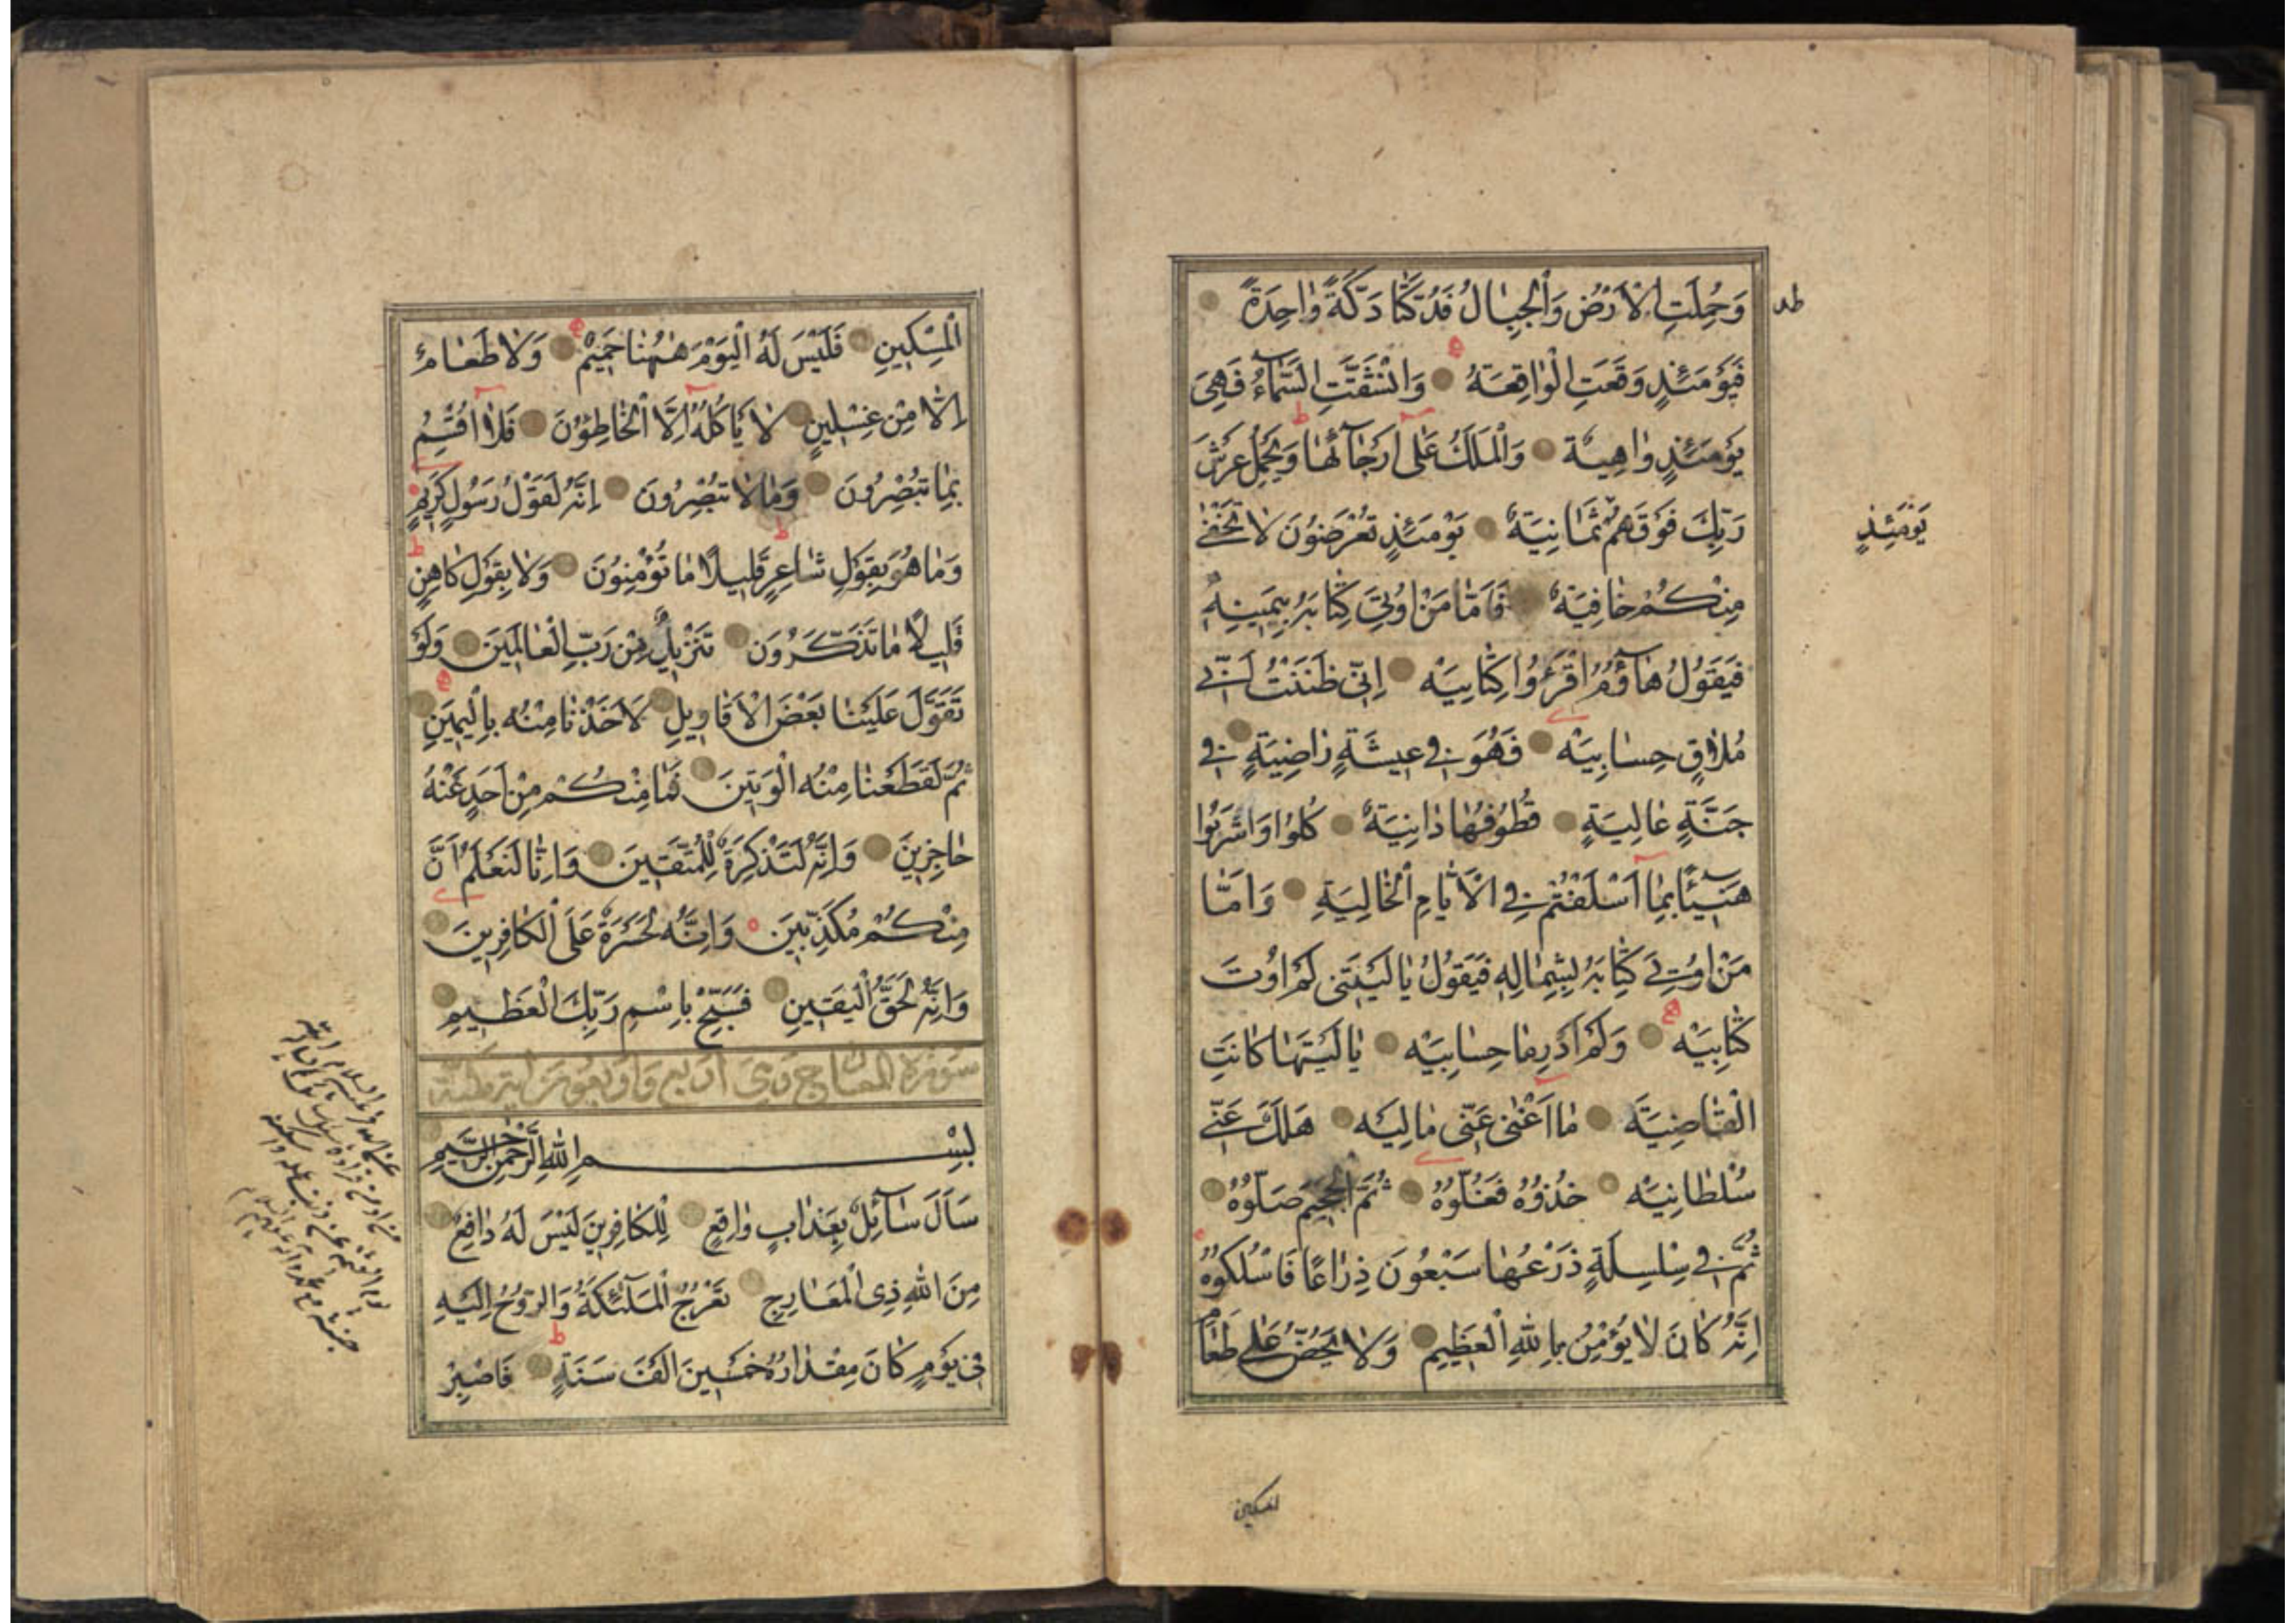 وَحُمِلَتِ الْاَرْضُ وَالْجِبَالُ فَدُكَّتَا دَكَّةً وَاحِدَةً
فَيَوْمَئِذٍ وَقَعَتِ الْوَاقِعَةُ وَانْشَقَّتِ السَّمَآءُ فَهِىَ
يَوْمَئِذٍ وَاهِيَةٌ وَالْمَلَكُ عَلٰٓى اَرْجَآئِهَا وَيَحْمِلُ عَرْشَ
رَبِّكَ فَوْقَهُمْ ثَمَانِيَةٌ يَوْمَئِذٍ تُعْرَضُونَ لَا تَخْفٰى
يَوْمَئِذٍ
مِنْكُمْ خَافِيَةٌ فَاَمَّا مَنْ اُوتِيَ كِتَابَهُ بِيَمِينِهِ
فَيَقُولُ هَآؤُمُ اقْرَؤُا كِتَابِيَهْ اِنِّى ظَنَنْتُ اَنِّى
مُلَاقٍ حِسَابِيَهْ فَهُوَ فِى عِيشَةٍ رَاضِيَةٍ فِى
جَنَّةٍ عَالِيَةٍ قُطُوفُهَا دَانِيَةٌ كُلُوا وَاشْرَبُوا
هَنِيٓئًا بِمَٓا اَسْلَفْتُمْ فِى الْاَيَّامِ الْخَالِيَةِ وَاَمَّا
مَنْ اُوتِىَ كِتَابَهُ بِشِمَالِهِ فَيَقُولُ يَا لَيْتَنِى لَمْ اُوتَ
كِتَابِيَهْ وَلَمْ اَدْرِ مَا حِسَابِيَهْ يَا لَيْتَهَا كَانَتِ
الْقَاضِيَةَ مَٓا اَغْنٰى عَنِّى مَالِيَهْ هَلَكَ عَنِّى
سُلْطَانِيَهْ خُذُوهُ فَغُلُّوهُ ثُمَّ الْجَحِيمَ صَلُّوهُ
ثُمَّ فِى سِلْسِلَةٍ ذَرْعُهَا سَبْعُونَ ذِرَاعًا فَاسْلُكُوهُ
اِنَّهُ كَانَ لَا يُؤْمِنُ بِاللّٰهِ الْعَظِيمِ وَلَا يَحُضُّ عَلٰى طَعَامِ
المسكين
الْمِسْكِينِ فَلَيْسَ لَهُ الْيَوْمَ هٰهُنَا حَمِيمٌ وَلَا طَعَامٌ
اِلَّا مِنْ غِسْلِينٍ لَا يَاْكُلُهُٓ اِلَّا الْخَاطِؤُنَ فَلَٓا اُقْسِمُ
بِمَا تُبْصِرُونَ وَمَا لَا تُبْصِرُونَ اِنَّهُ لَقَوْلُ رَسُولٍ كَرِيمٍ
وَمَا هُوَ بِقَوْلِ شَاعِرٍ قَلِيلًا مَا تُؤْمِنُونَ وَلَا بِقَوْلِ كَاهِنٍ
قَلِيلًا مَا تَذَكَّرُونَ تَنْزِيلٌ مِنْ رَبِّ الْعَالَمِينَ وَلَوْ
تَقَوَّلَ عَلَيْنَا بَعْضَ الْاَقَاوِيلِ لَاَخَذْنَا مِنْهُ بِالْيَمِينِ
ثُمَّ لَقَطَعْنَا مِنْهُ الْوَتِينَ فَمَا مِنْكُمْ مِنْ اَحَدٍ عَنْهُ
حَاجِزِينَ وَاِنَّهُ لَتَذْكِرَةٌ لِلْمُتَّقِينَ وَاِنَّا لَنَعْلَمُ اَنَّ
مِنْكُمْ مُكَذِّبِينَ وَاِنَّهُ لَحَسْرَةٌ عَلَى الْكَافِرِينَ
وَاِنَّهُ لَحَقُّ الْيَقِينِ فَسَبِّحْ بِاسْمِ رَبِّكَ الْعَظِيمِ
سورة المعارج وهى اربع واربعون اية مكية
بِسْمِ اللّٰهِ الرَّحْمٰنِ الرَّحِيمِ
سَاَلَ سَآئِلٌ بِعَذَابٍ وَاقِعٍ لِلْكَافِرِينَ لَيْسَ لَهُ دَافِعٌ
مِنَ اللّٰهِ ذِى الْمَعَارِجِ تَعْرُجُ الْمَلٰٓئِكَةُ وَالرُّوحُ اِلَيْهِ
فِى يَوْمٍ كَانَ مِقْدَارُهُ خَمْسِينَ اَلْفَ سَنَةٍ فَاصْبِرْ